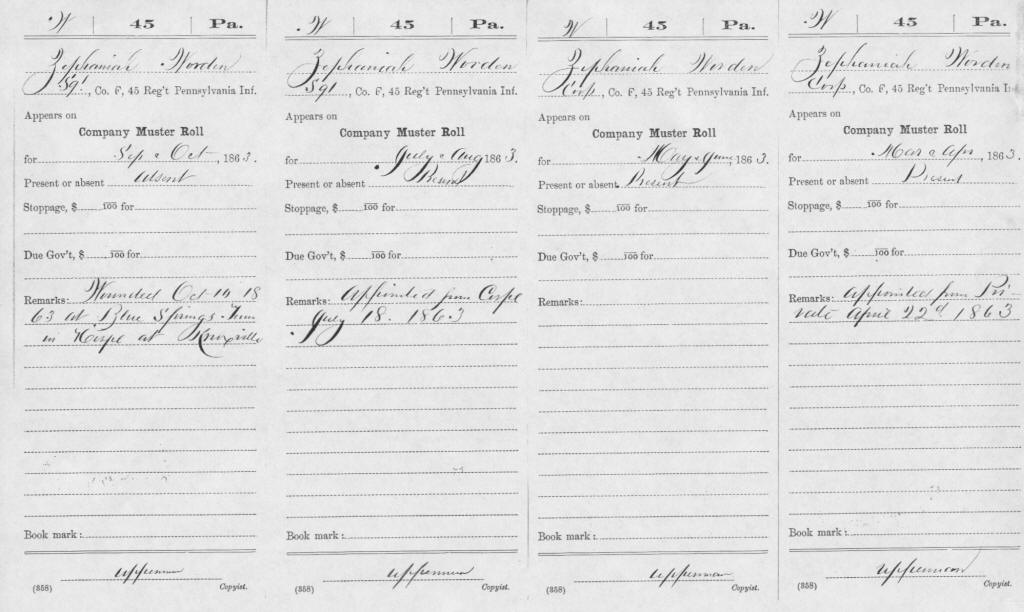 W | 45 | Pa.
Zephaniah Worden
Sgt, Co. F, 45 Reg't Pennsylvania Inf.
Appears on
Company Muster Roll
for Sep & Oct, 1863.
Present or absent Absent
Stoppage, $ 100 for
Due Gov't, $ 100 for
Remarks: Wounded Oct 10 18
63 at Blue Springs Tenn
in Hospl at Knoxville
Book mark:
(358) Copyist.
W | 45 | Pa.
Zephaniah Worden
Sgt, Co. F, 45 Reg't Pennsylvania Inf.
Appears on
Company Muster Roll
for July & Aug 1863.
Present or absent Present
Stoppage, $ 100 for
Due Gov't, $ 100 for
Remarks: Appointed from Corpl
July 18. 1863
Book mark:
(358) Copyist.
W | 45 | Pa.
Zephaniah Worden
Corp, Co. F, 45 Reg't Pennsylvania Inf.
Appears on
Company Muster Roll
for May & June, 1863.
Present or absent Present
Stoppage, $ 100 for
Due Gov't, $ 100 for
Remarks:
Book mark:
(358) Copyist.
W | 45 | Pa.
Zephaniah Worden
Corp, Co. F, 45 Reg't Pennsylvania In
Appears on
Company Muster Roll
for Mar & Apr, 1863.
Present or absent Present
Stoppage, $ 100 for
Due Gov't, $ 100 for
Remarks: Appointed from Pri
vate April 22d 1863
Book mark:
(358) Copyist.